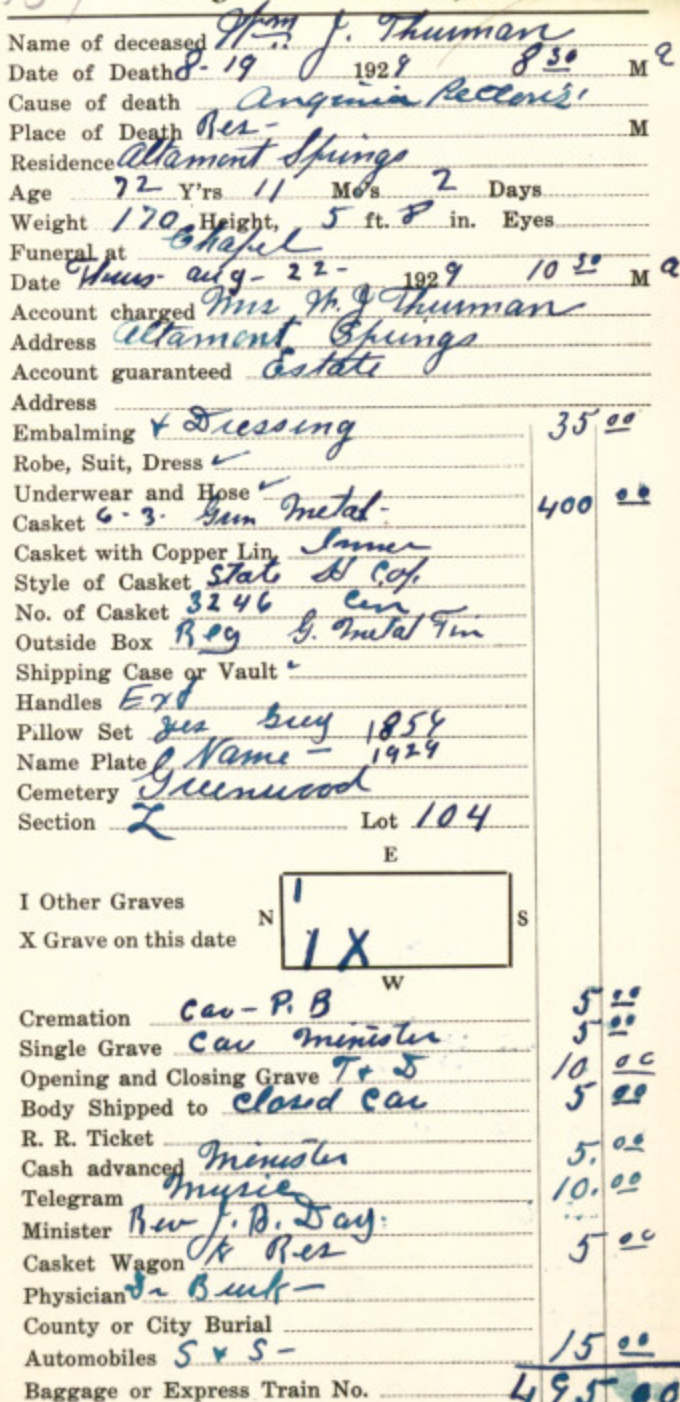 Name of deceased Wm. J. Thurman
Date of Death 8-19 1929 8 30 M a
Cause of death Anginia Pectoris
Place of Death Res- M
Residence Altamont Springs
Age 72 Y'rs 11 Mo's 2 Days
Weight 170 Height, 5 ft. 8 in. Eyes
Funeral at Chapel
Date Thurs- Aug- 22- 1929 10 30 M a
Account charged Mrs W. J Thurman
Address Altamont Springs
Account guaranteed Estate
Address
Embalming & Dressing 35 00
Robe, Suit, Dress ✓
Underwear and Hose ✓
Casket 6-3. Gun Metal- 400 00
Casket with Copper Lin. Inner
Style of Casket State
No. of Casket 3246
Outside Box Reg G. Metal Fin
Shipping Case or Vault
Handles Ext
Pillow Set yes Grey 1856
Name Plate Name - 1929
Cemetery Greenwood
Section Z Lot 104
E
I Other Graves
N I S
X Grave on this date
I X
W
Cremation Car - P. B 5 00
Single Grave Car Minister 5 00
Opening and Closing Grave T & D 10 00
Body Shipped to Closed Car 5 00
R. R. Ticket
Cash advanced Minister 5. 00
Telegram Music 10. 00
Minister Rev J. B. Day.
Casket Wagon Res 5 00
Physician Dr Burk-
County or City Burial
Automobiles S & S- 15 00
Baggage or Express Train No. 495 00